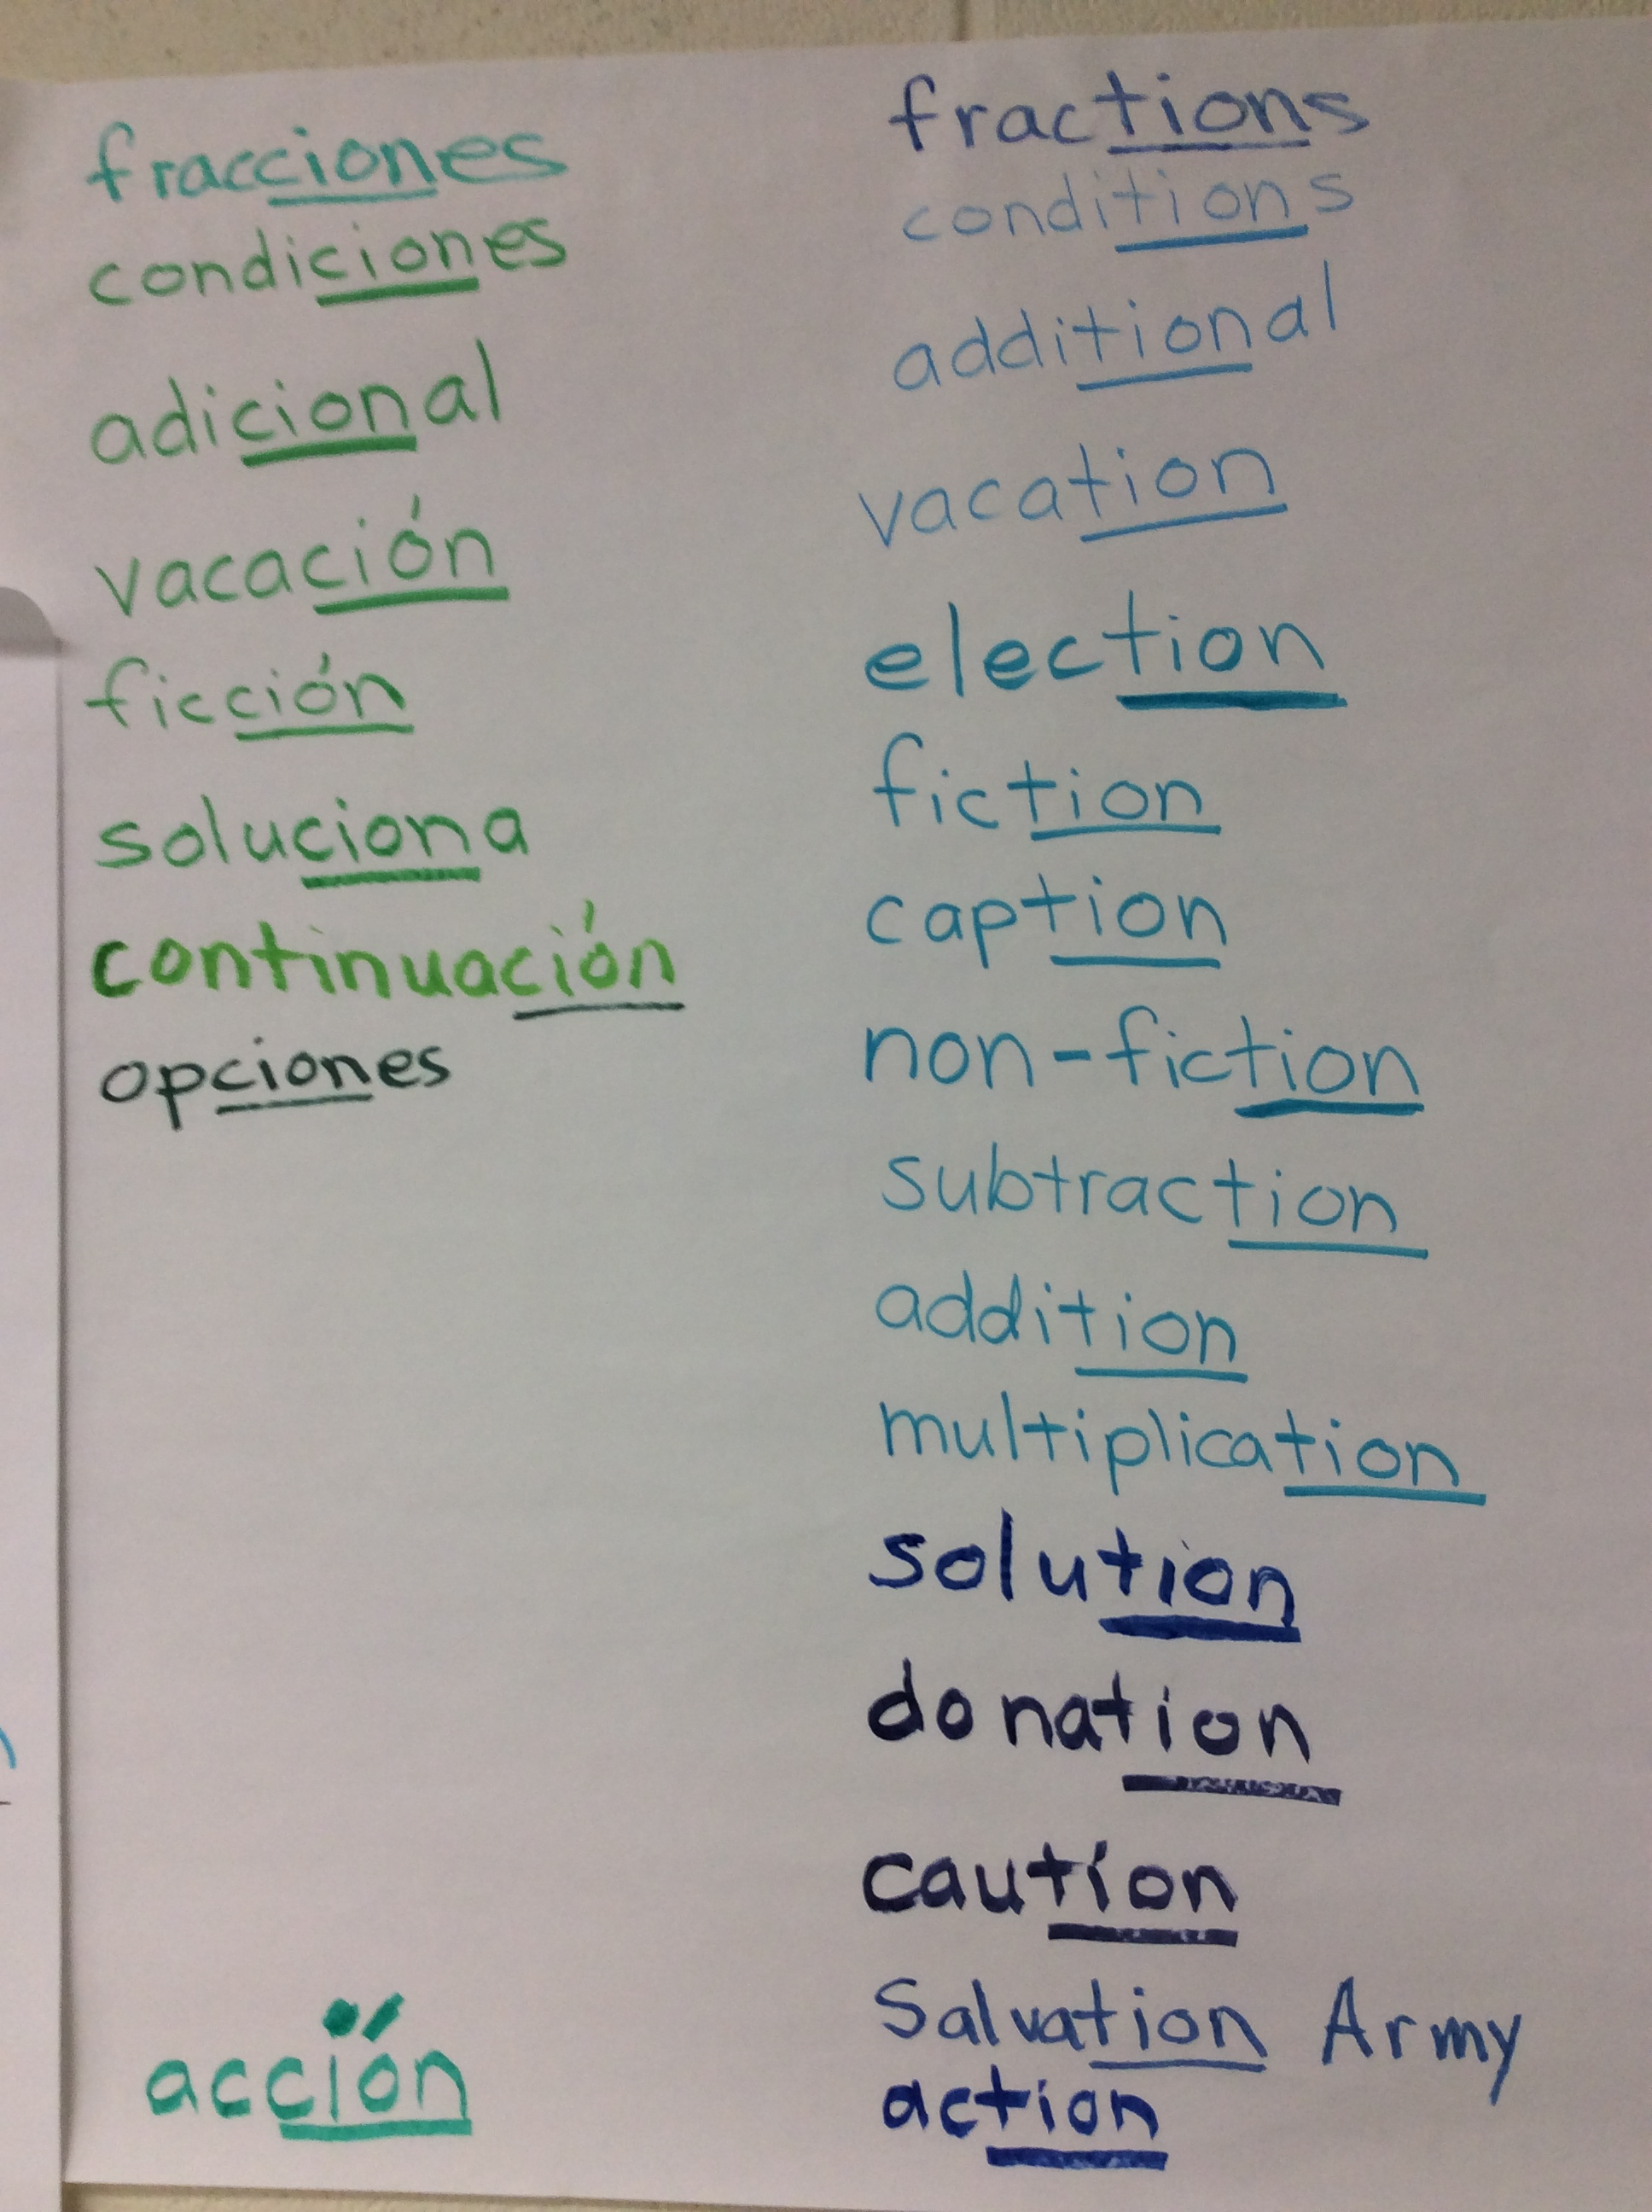 fracciones
condiciones
adicional
vacación
ficción
soluciona
continuación
opciones
acción
fractions
conditions
additional
vacation
election
fiction
caption
non-fiction
subtraction
addition
multiplication
solution
donation
caution
Salvation Army
action